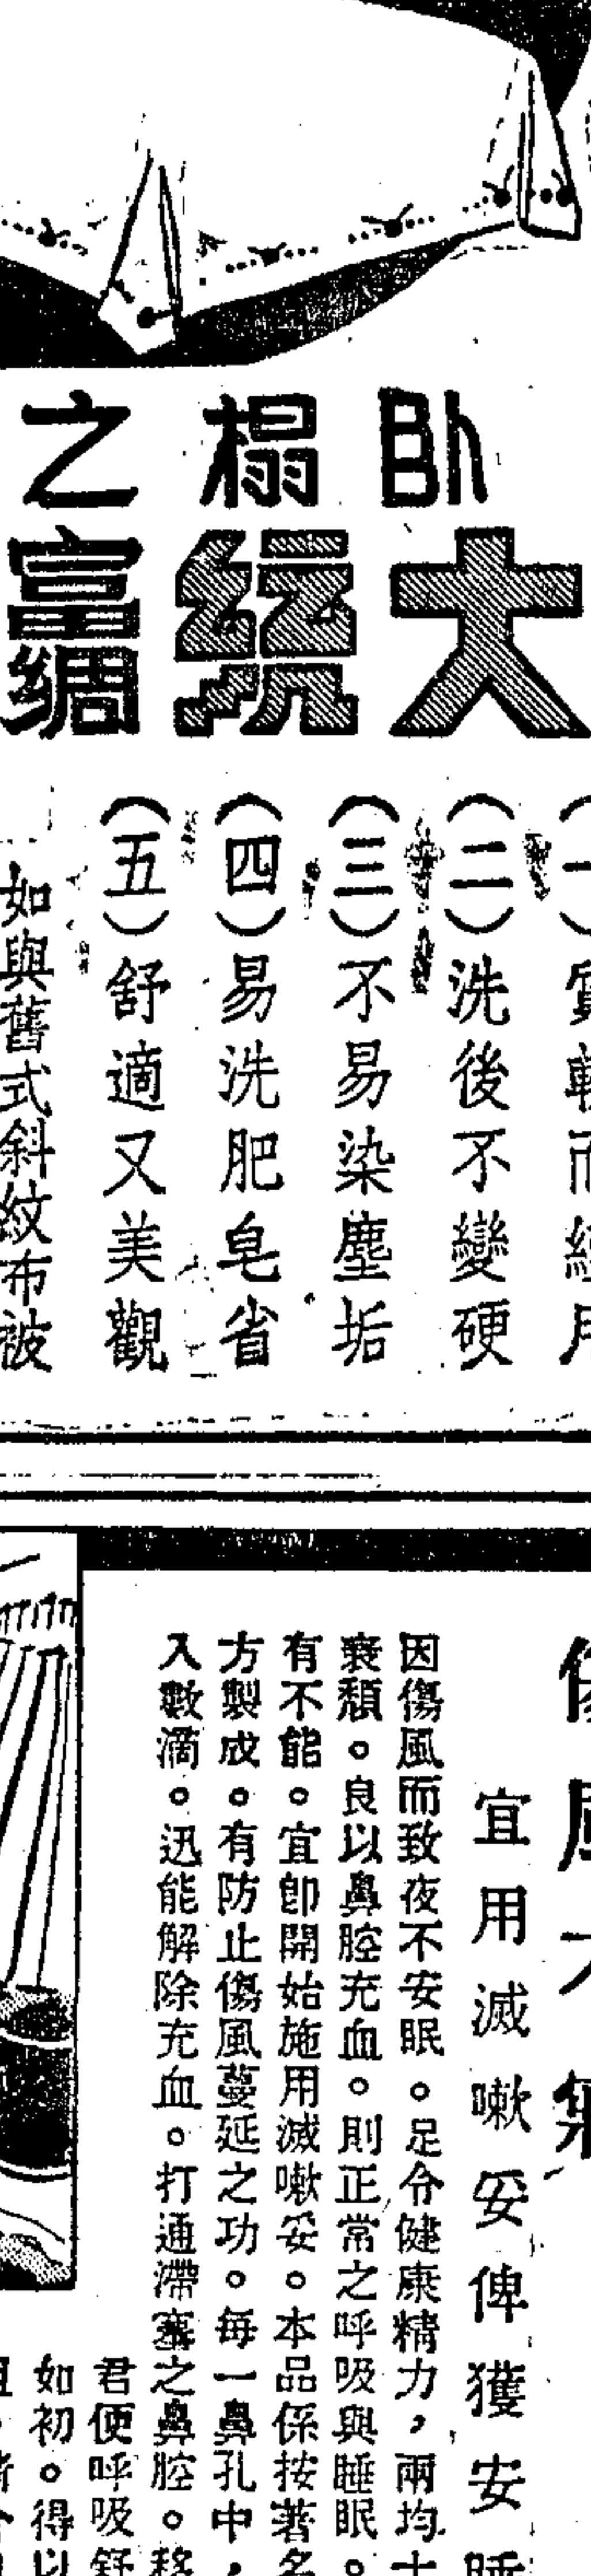 臥榻之
大統富綢
而經用
(二)洗後不變硬
(三)不易染塵垢
(四)易洗肥皂省
(五)舒適又美觀
如與舊式斜紋布被
傷風
宜用滅嗽妥俾獲安睡
因傷風而致夜不安眠。足令健康精力，兩均
衰頹。良以鼻腔充血。則正常之呼吸與睡眠。
有不能。宜卽開始施用滅嗽妥。本品係按著名
方製成。有防止傷風蔓延之功。每一鼻孔中，
入數滴。迅能解除充血。打通滯塞之鼻腔。移
君便呼吸舒
如初。得以